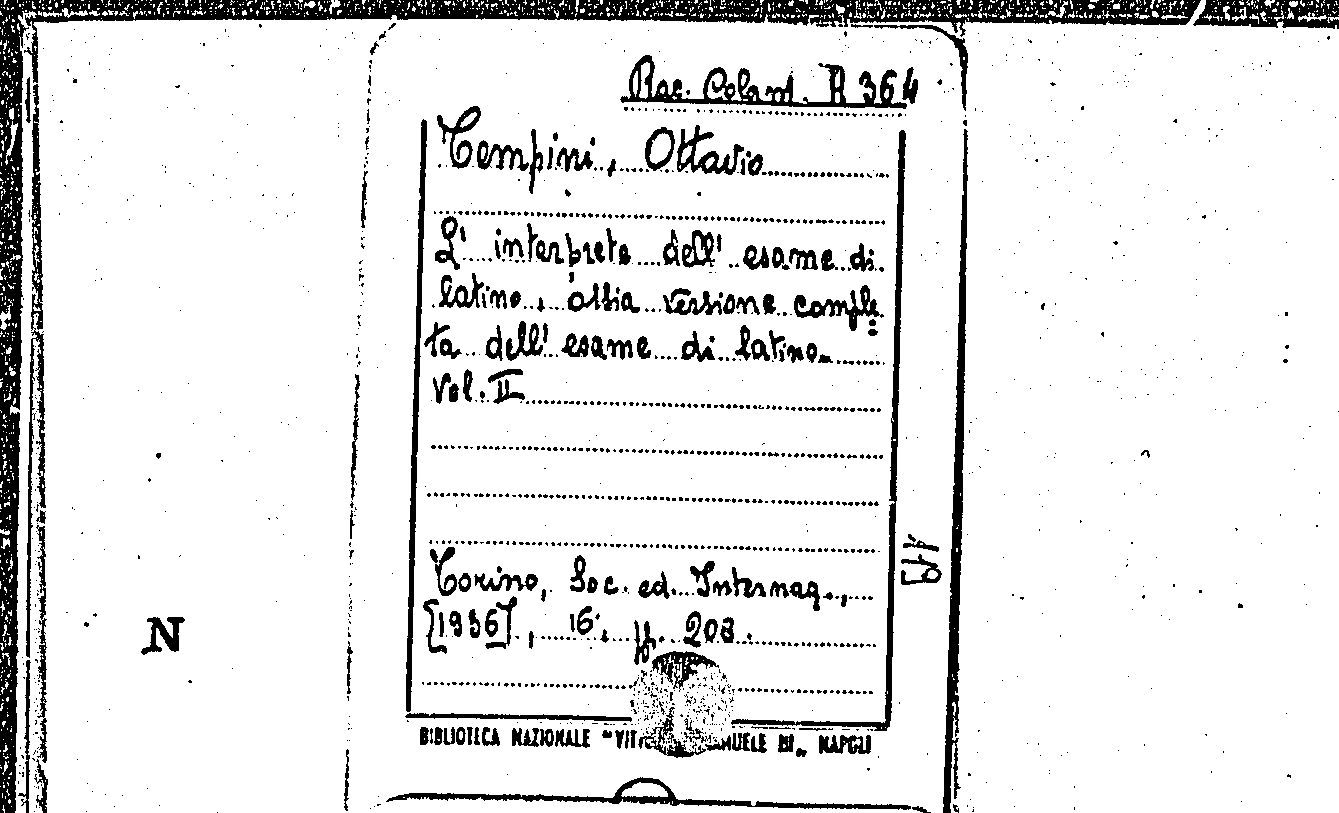 Rac. Colant. B 364
Tempini, Ottavio
L' interprete dell' esame di
latino, ossia versione comple=
ta dell' esame di latino.
Vol. II
Torino, Soc. ed. Internaz.,
[1936], 16°, pp. 203.
BIBLIOTECA NAZIONALE "VITT MUELE III„ NAPOLI
N